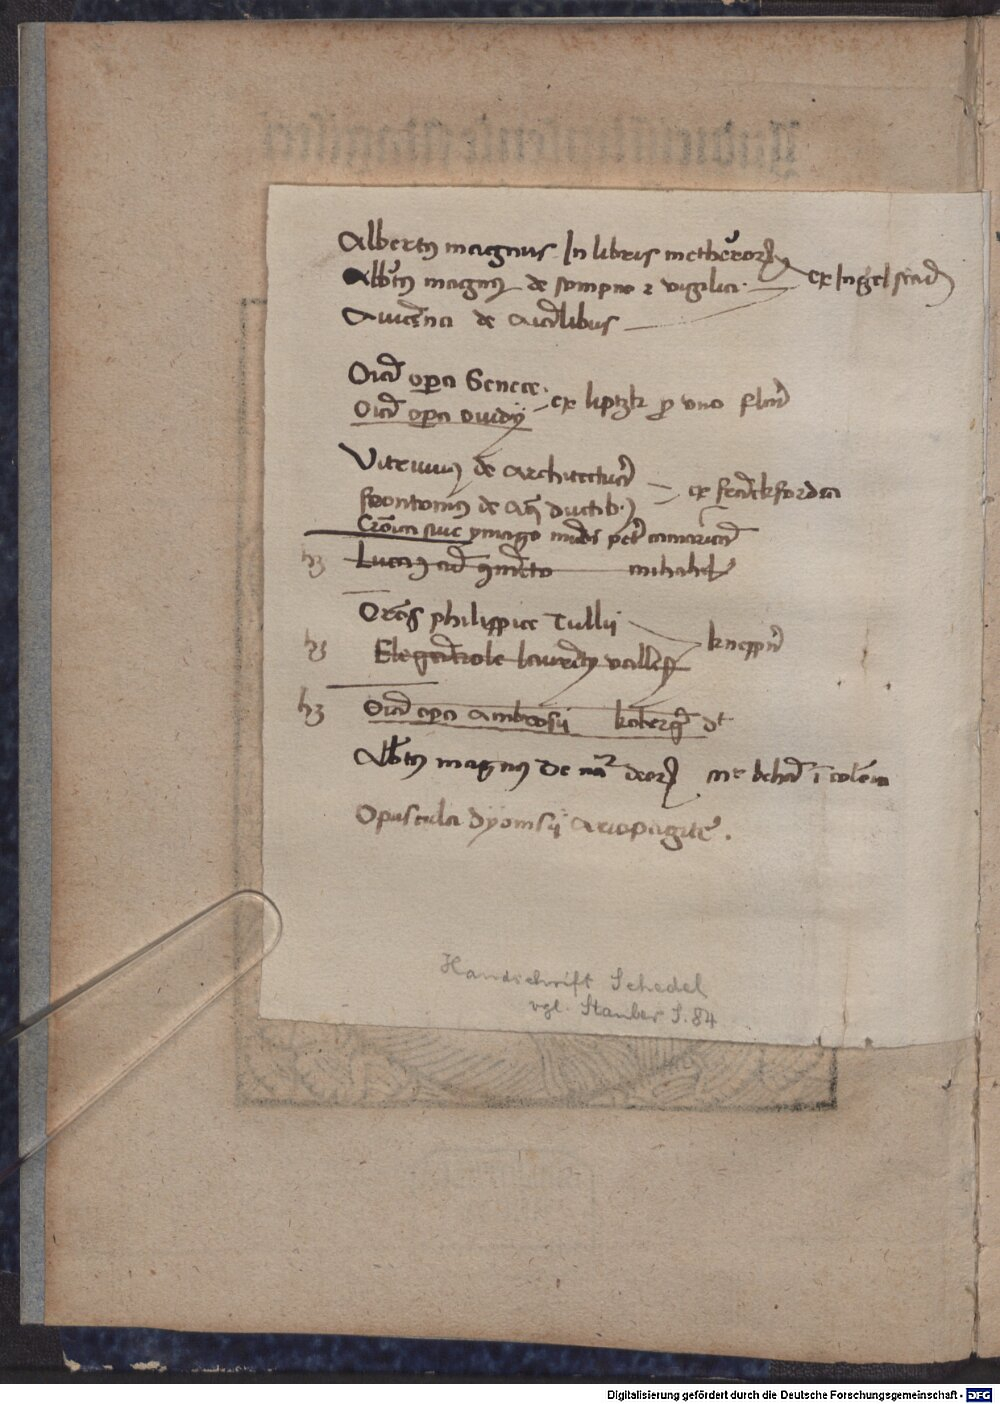 Albertus magnus In libris metheororum
Albertus magnus de sompno et vigilia. ex Ingelstad
Avicenna de Animalibus
Omnia opera Senece. ex liptzk pro uno
Omnia opera ovidij
Vitruvius de architectura ex franckfordia
frontonius de aque ductibus
Cronica sive ymago mundi
hz Lucanus cum commento michahel
Orationes philippice Tullij
hz laurentij vallensis
hz Omnia opera Ambrosij koberger dt
Albertus magnus De natura deorum
Opuscula dyonisij Ariopagite.
Handschrift Schedel
vgl. Stauber S. 84
Digitalisierung gefördert durch die Deutsche Forschungsgemeinschaft - DFG